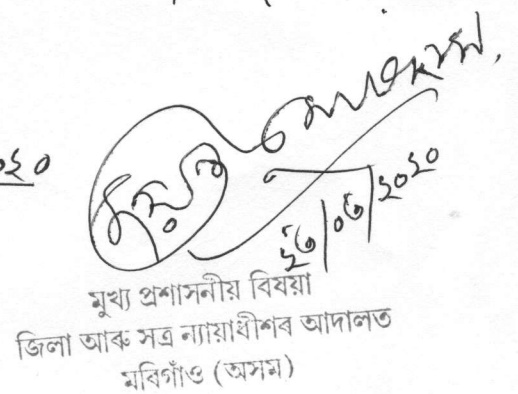 ২৩/০৩/২০২০
মুখ্য প্ৰশাসনীয় বিষয়া
জিলা আৰু সত্ৰ ন্যায়াধীশৰ আদালত
মৰিগাঁও (অসম)